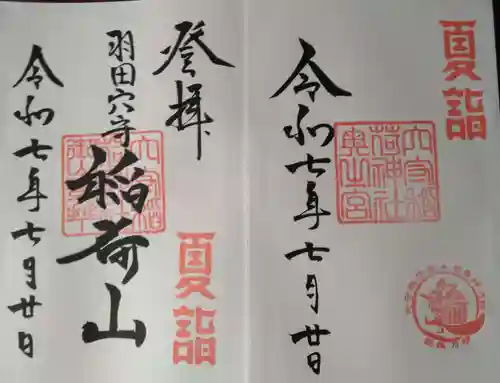 夏詣
穴守稲
荷神社
奥之宮
令和七年七月廿日
登拝
羽田穴守
稲荷山
夏詣
令和七年七月廿日